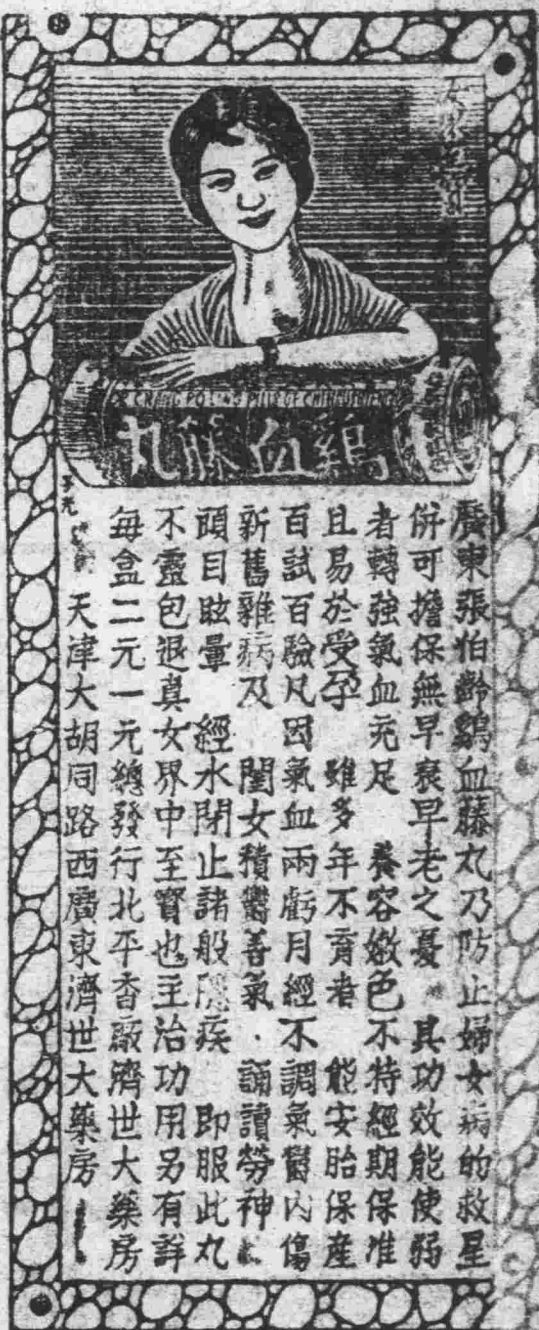 鷄血藤丸
廣東張伯齡鷄血藤丸乃防止婦女病的救星
併可擔保無早衰早老之憂 其功效能使弱
者轉強氣血充足 養容嫩色不特經期保准
且易於受孕 雖多年不育者 能安胎保産
百試百驗凡因氣血兩虧月經不調氣鬱內傷
新舊雜病及 閨女積鬱善氣．誦讀勞神
頭目眩暈 經水閉止諸般隱疾 即服此丸
不靈包退真女界中至寳也主治功用另有詳
每盒二元一元總發行北平香廠濟世大藥房
天津大胡同路西廣東濟世大藥房